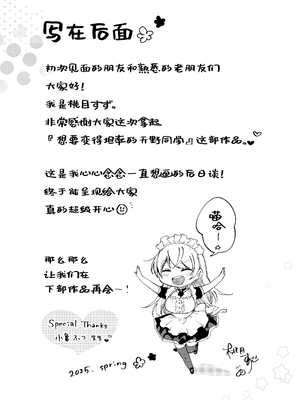 写在后面
初次见面的朋友和熟悉的老朋友们
大家好！
我是桃目すず。
非常感谢大家这次拿起
『想要变得坦率的天野同学』这部作品。
这是我心心念念一直想画的后日谈！
终于能呈现给大家
真的超级开心
那么那么
让我们在
下部作品再会—！
喵哈—。
Special Thanks
2025. spring